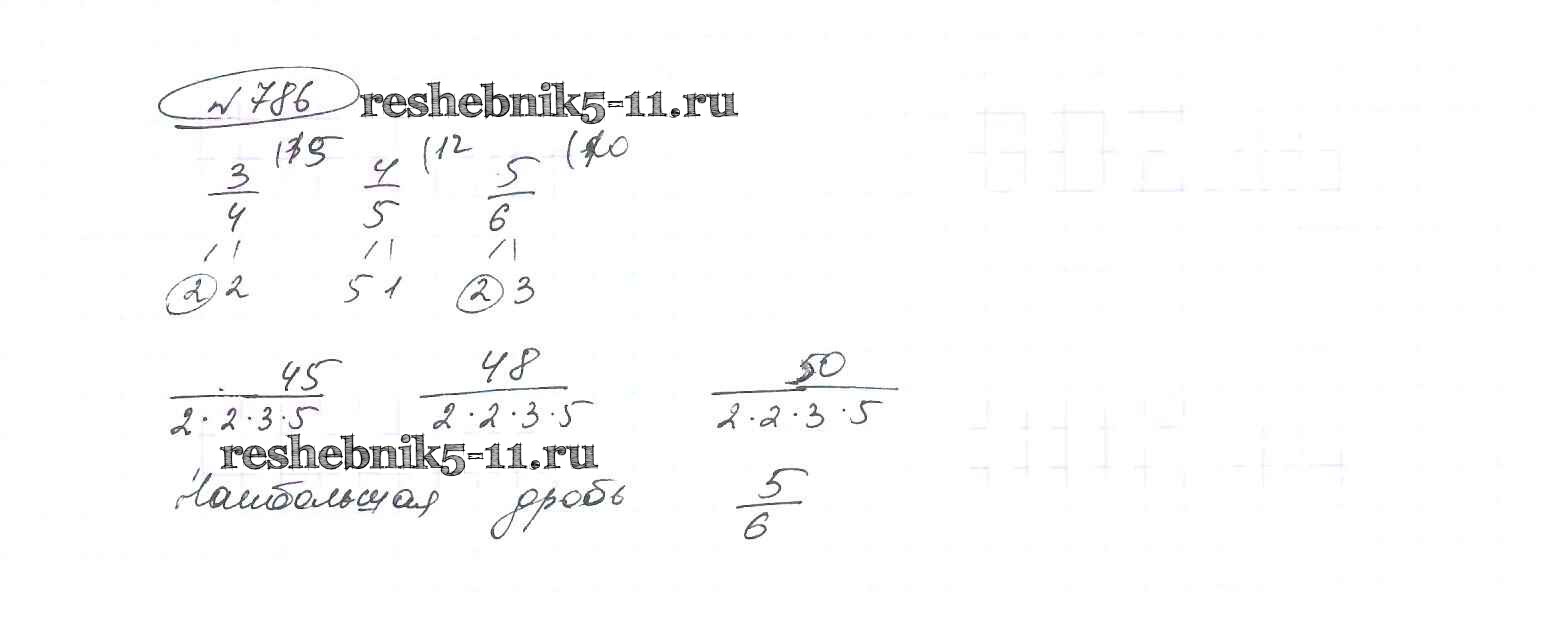 № 786 reshebnik5-11.ru
(15 (12 (10
3/4 4/5 5/6
2 2 5 1 2 3
45 48 50
2·2·3·5 2·2·3·5 2·2·3·5
reshebnik5-11.ru
Наибольшая дробь 5/6